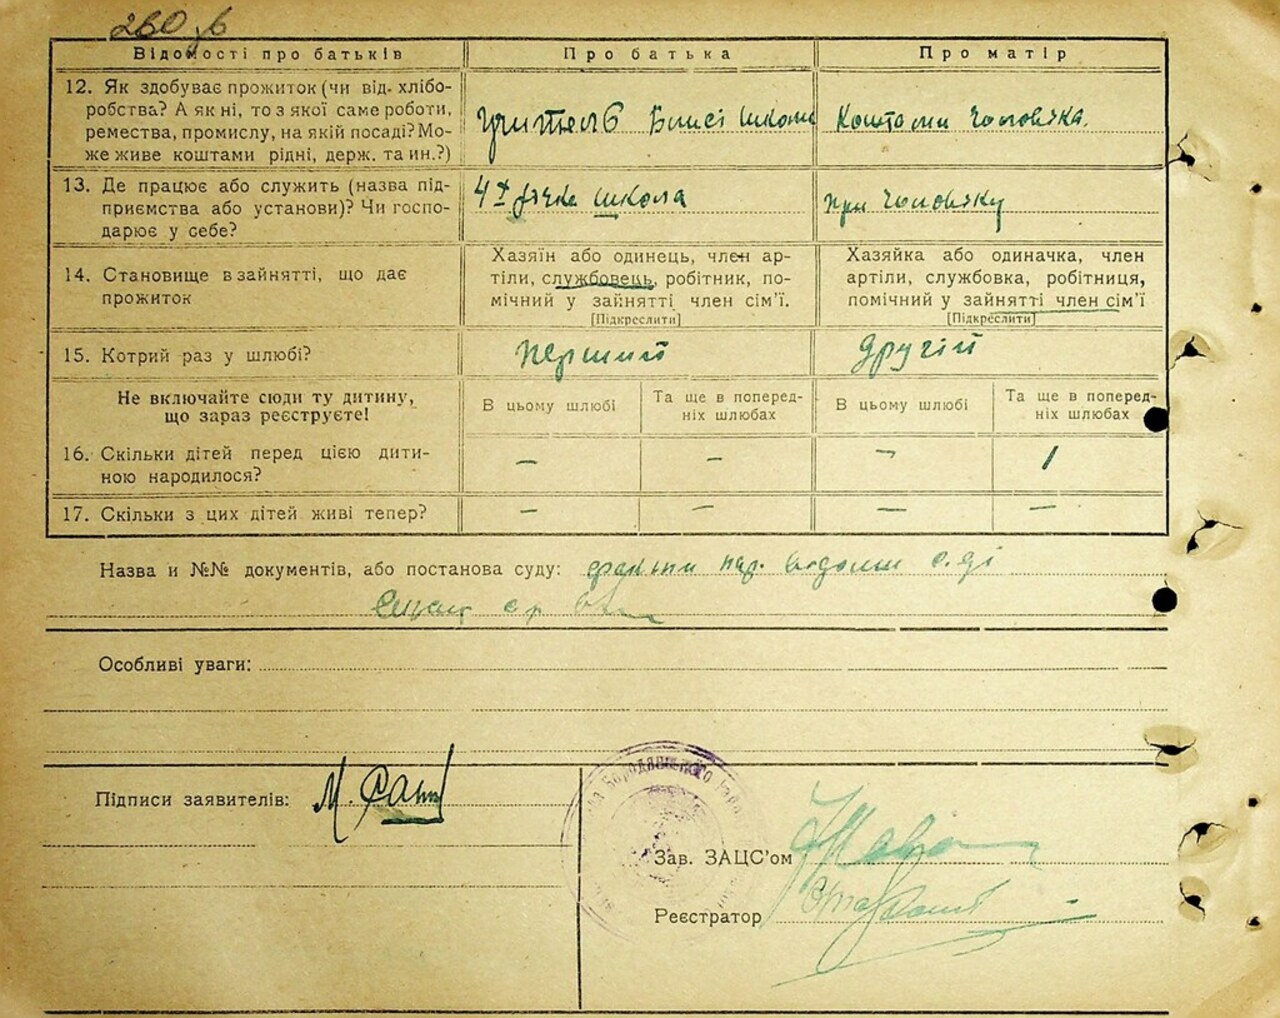 260 зв
Відомості про батьків
Про батька
Про матір
12. Як здобуває прожиток (чи від хлібо-
робства? А як ні, то з якої саме роботи,
ремества, промислу, на якій посаді? Мо-
же живе коштами рідні, держ. та ин.?)
учитель школи
Коштами чоловіка.
13. Де працює або служить (назва під-
приємства або установи)? Чи госпо-
дарює у себе?
школа
при чоловіку
14. Становище в зайнятті, що дає
прожиток
Хазяїн або одинець, член ар-
тіли, службовець, робітник, по-
мічний у зайнятті член сім'ї.
[Підкреслити]
Хазяйка або одиначка, член
артіли, службовка, робітниця,
помічний у зайнятті член сім'ї
[Підкреслити]
15. Котрий раз у шлюбі?
перший
другій
Не включайте сюди ту дитину,
що зараз реєструєте!
В цьому шлюбі
Та ще в поперед-
ніх шлюбах
В цьому шлюбі
Та ще в поперед-
ніх шлюбах
16. Скільки дітей перед цією дити-
ною народилося?
–
–
–
1
17. Скільки з цих дітей живі тепер?
–
–
–
–
Назва и №№ документів, або постанова суду:
Особливі уваги:
Підписи заявителів: М.
Бородянського
Зав. ЗАЦС'ом
Реєстратор